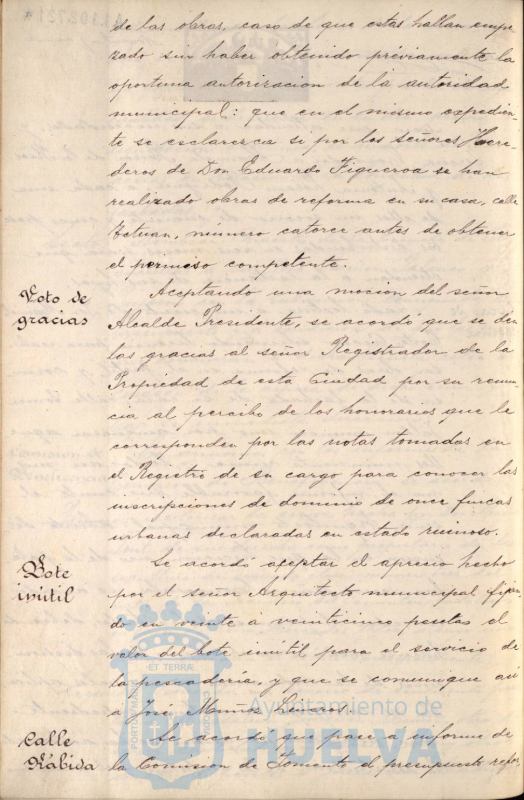 de las obras, caso de que estas hallan empe
zado sin haber obtenido préviamente la
oportuna autorizacion de la autoridad
municipal: que en el mismo expedien
te se esclarezca si por los señores Here
deros de Don Eduardo Figueroa se han
realizado obras de reforma en su casa, calle
Tetuan, número catorce antes de obtener
el permiso competente.
Voto de
gracias
Aceptando una mocion del señor
Alcalde Presidente, se acordó que se den
las gracias al señor Registrador de la
Propiedad de esta Ciudad por su renun
cia al percibo de los honorarios que le
corresponden por las notas tomadas en
el Registro de su cargo para conocer las
inscripciones de dominio de once fincas
urbanas declaradas en estado ruinoso.
Bote
inútil
Se acordó aceptar el aprecio hecho
por el señor Arquitecto municipal fijan
do en veinte a veinticinco pesetas el
valor del bote inútil para el servicio de
la pescadería, y que se comunique así
a José Muñoz
Calle
Rábida
Se acordó que pase a informe de
la Comision de Fomento el presupuesto refor
PORTUS MARIS
ET TERRAE
CUSTODIA
Ayuntamiento de
HUELVA